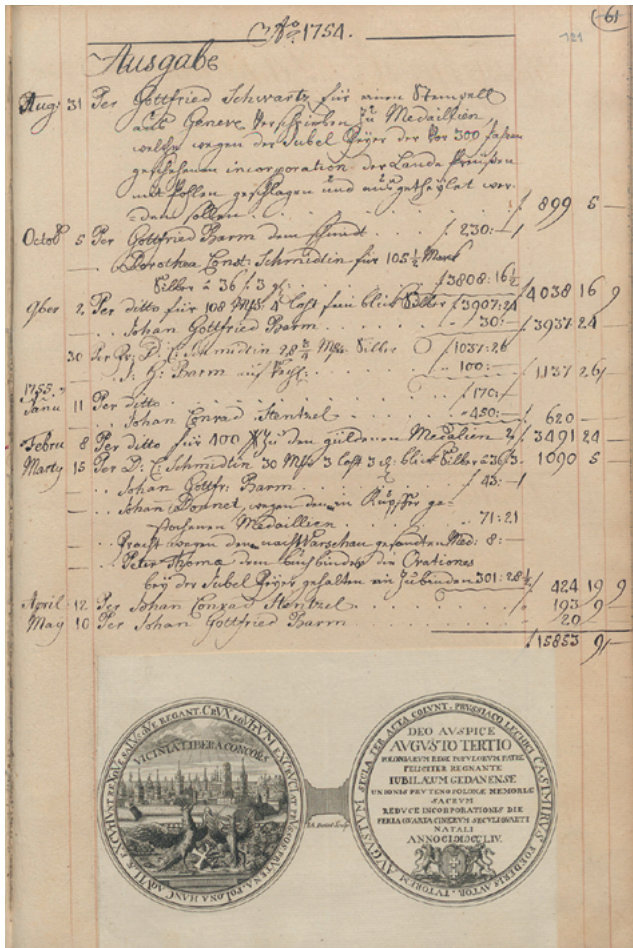 (61
Ao. 1754.
121
Ausgabe
Aug: 31 Per Gottfried Schwartz für einen Stempell
aus Geneve verschrieben zu Medaillien
welche wegen der Jubel Feyer der vor 300 Jahren
geschehenen incorporation der Lande Preußen
mit Pohlen geschlagen und ausgetheylet wer-
den sollen . . . 899 5 —
Octob 5 Per Gottfried Barm dem . . . 230: —
— Dorothea Const: Schmidtin für 105 ½ Marck
Silber à 36 f 3 g: . . . 3808: 16 ½ 4038 16 9
9ber 2 Per ditto für 108 Mk: 4 loht fein blick Silber 3907: 24
— . . Johan Gottfried Barm . . . 30: — 3937 24 —
30 Per Fr: D: C: Schmidtin 28 ¾ Mk: Silber 1037: 26
— . . J: G: Barm auf . . . 100: — 1137 26 —
1755.
Janu 11 Per ditto . . . 170: —
— Johan Conrad Stentzel . . . 450: — 620 —
Febru 8 Per ditto für 400 # zu den güldenen Medalien 3491 24 —
Marty 15 Per D: C: Schmidtin 30 Mk 3 loht 3 blick Silber à 36 f 3. 1090 5
— . . Johan Gottfr: Barm . . . 43: —
— . . Johan Donnet, wegen den in Kupffer ge-
stochenen Medaillien . . . 71: 21
— Fracht wegen dem nach Warschau gesandten Med: 8: —
— . . Peter Thomæ dem buchbinder die Orationes
bey der Jubel Feyer gehalten einzubinden 301: 28 ½ 424 19 9
April 12 Per Johan Conrad Stentzel . . . 193 9 —
May 10 Per Johan Gottfried Barm . . . 20 —
15853 9 —
VICINIA LIBERA CONCORS
DEO AVSPICE
AVGVSTO TERTIO
POLONIARUM REGE POPULORUM PATRE
FELICITER REGNANTE
IUBILÆUM GEDANENSE
UNIONIS PRUTENO POLONÆ MEMORIÆ
SACRVM
REDUCE INCORPORATIONIS DIE
FERIA QUARTA CINERVM SECULI QUARTI
NATALI
ANNO CIƆIƆCCLIV.